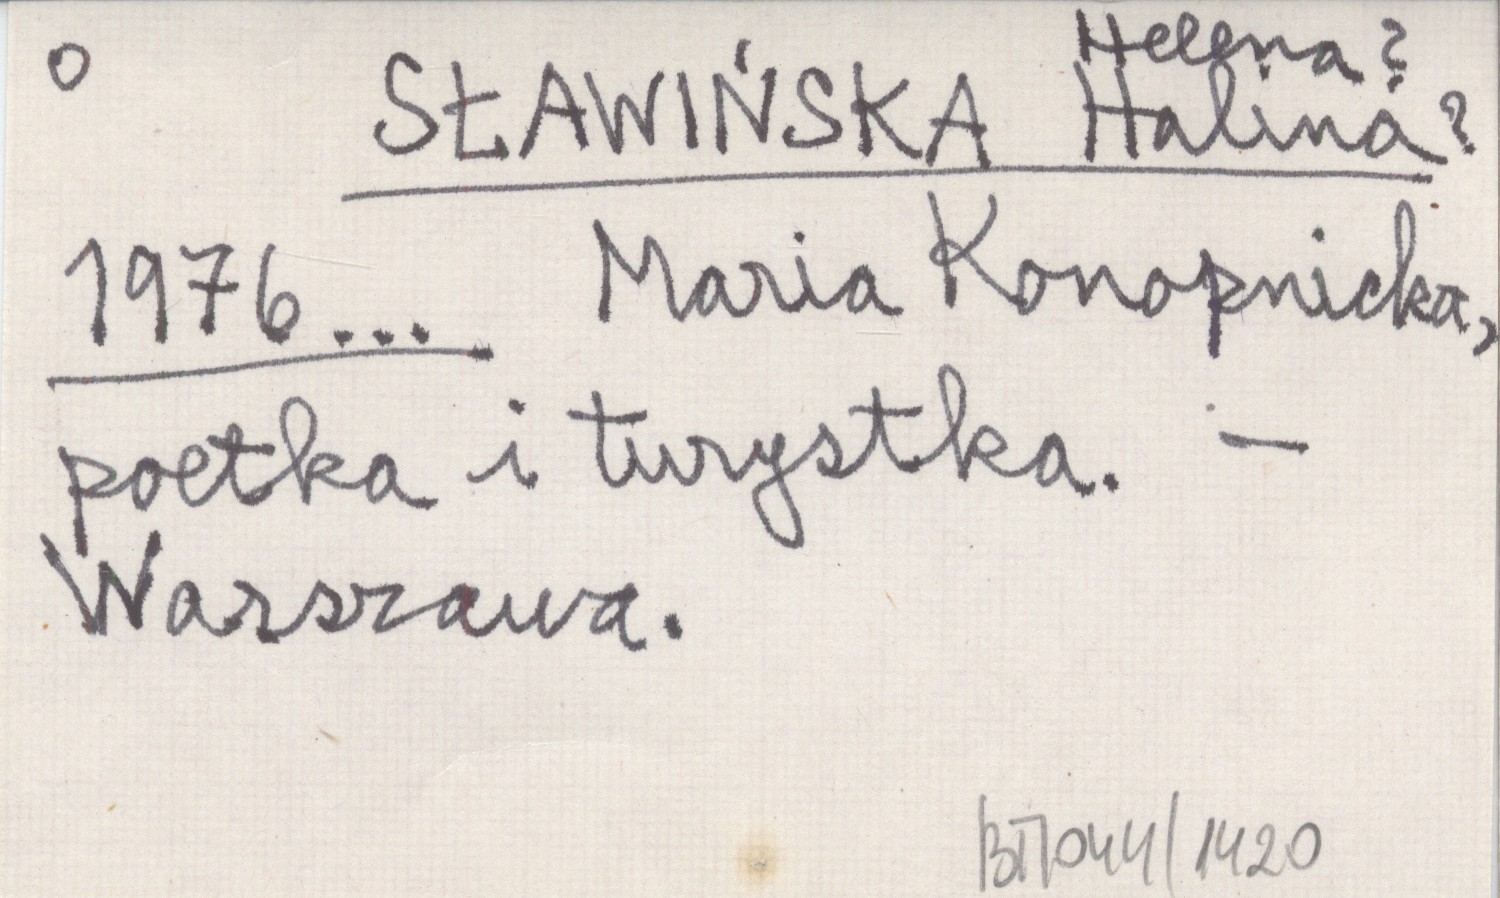 o
Helena?
SŁAWIŃSKA Halina?
1976... Maria Konopnicka,
poetka i turystka. —
Warszawa.
/1420